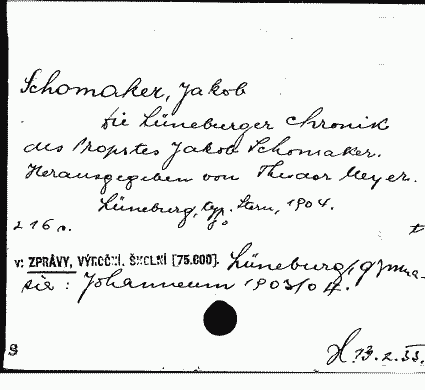 Schomaker, Jakob
Die Lüneburger Chronik
des Propstes Jakob Schomaker.
Herausgegeben von Theodor Meyer.
Lüneburg, typ. Stern, 1904.
216 s.
v: ZPRÁVY, VÝROČNÍ. ŠKOLNÍ [75.600]. Lüneburg, Gymna-
sia: Johanneum 1903/04.
H 13.2.33.